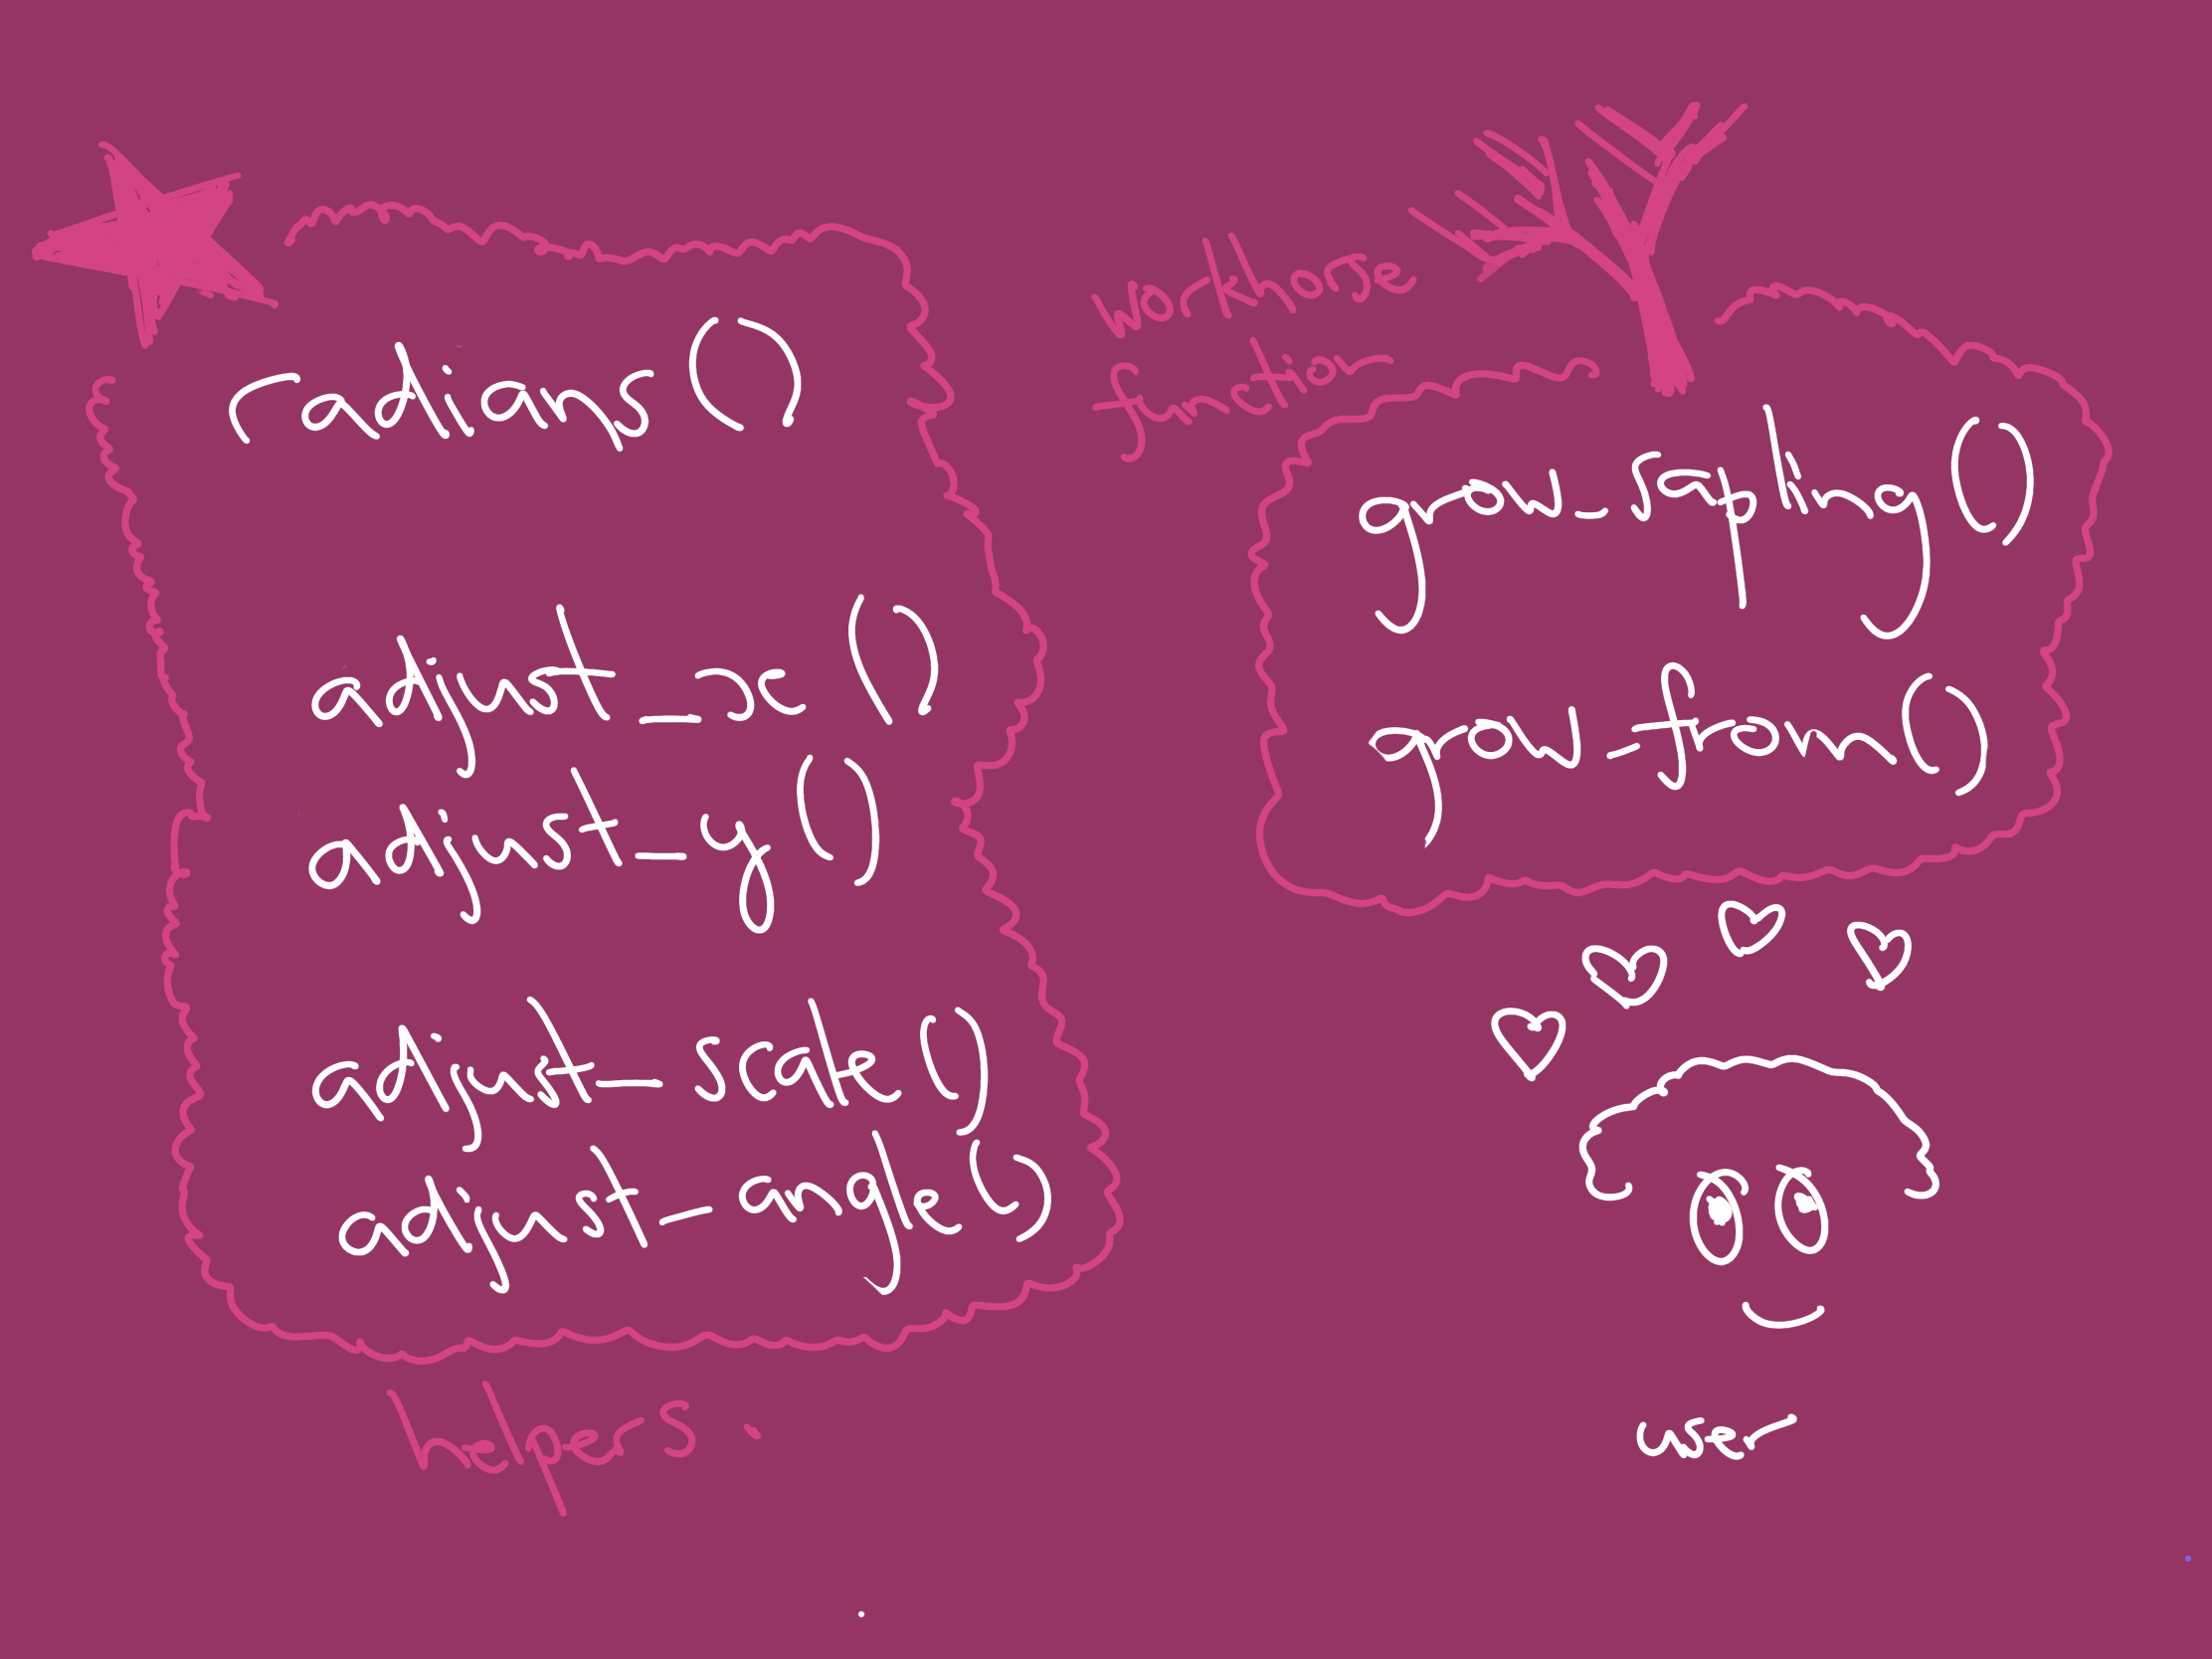 radians()
adjust_x()
adjust_y()
adjust_scale()
adjust_angle()
helpers.
workhorse
function
grow_sapling()
grow_from()
user